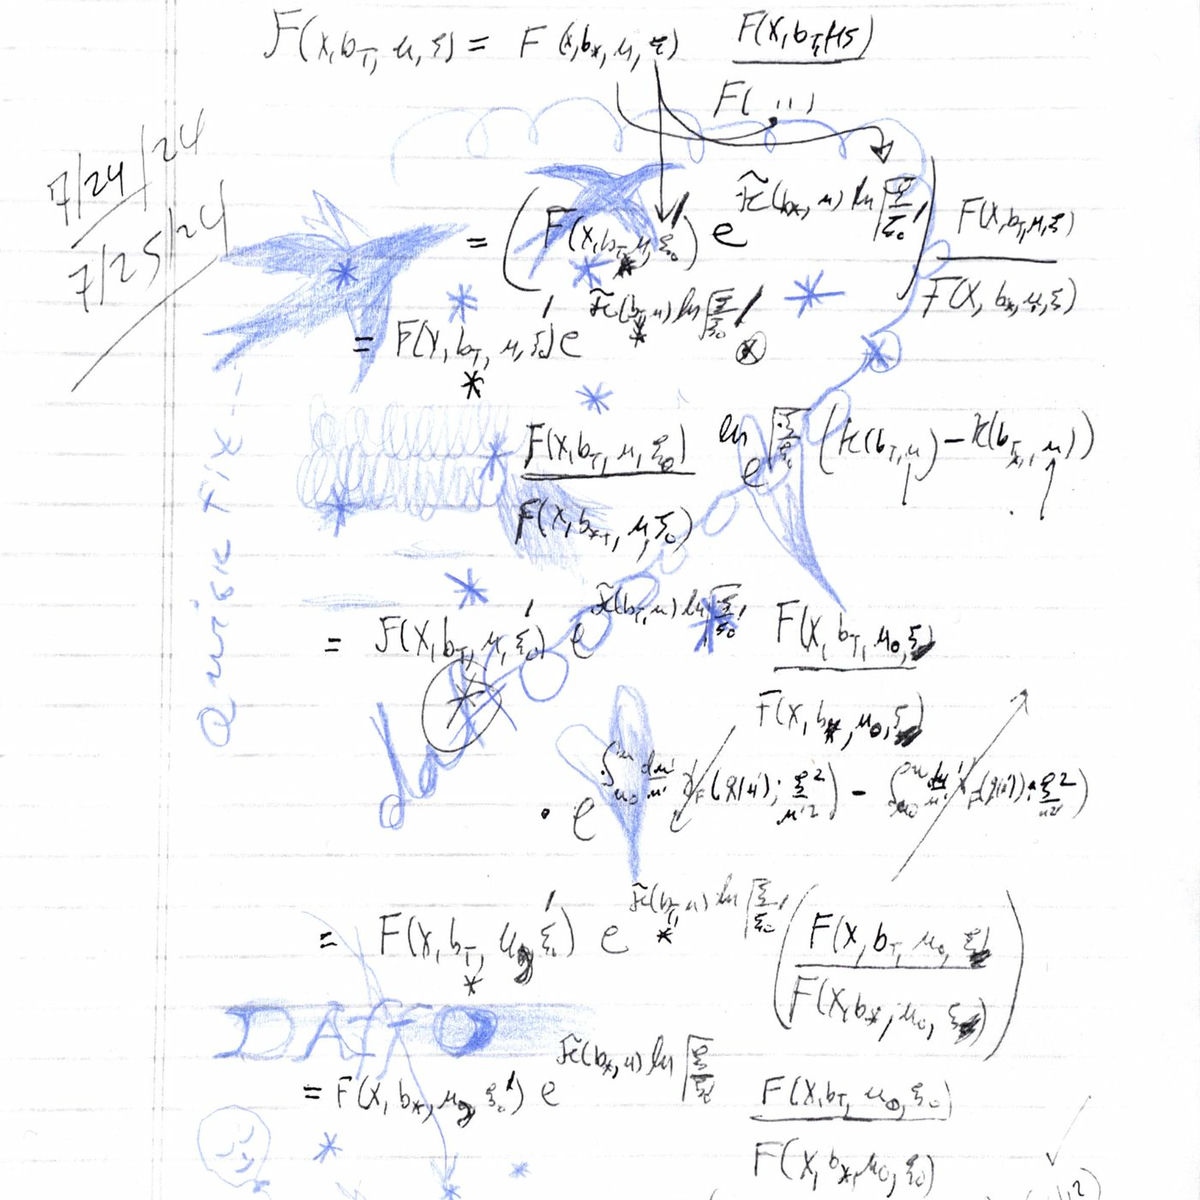 F(x,b_T,μ,ξ) = F(x,b_*,μ,ξ) F(x,b_T,μ,ξ)
F(")
7/24/24
7/25/24
= (F(x,b_T*,μ,ξ_0') e^{K̃(b_*,μ) ln√(ξ/ξ_0')}) F(x,b_T,μ,ξ)
F(x,b_*,μ,ξ)
= F(x,b_T*,μ,ξ_0') e^{K̃(b_T*,μ) ln√(ξ/ξ_0')} ⊛
F(x,b_T,μ,ξ_0) e^{ln√(ξ/ξ_0) (K(b_T,μ) - K(b_T*,μ))}
F(x,b_*T,μ,ξ_0)
Quick Fix -
= F(x,b_T*,μ,ξ_0') e^{K̃(b_T,μ) ln√(ξ/ξ_0')} F(x,b_T,μ_0,ξ)
F(x,b_*,μ_0,ξ)
· e^{∫_{μ_0}^{μ} dμ'/μ' γ_F(g(μ'); ξ²/μ'²) - ∫_{μ_0}^{μ} dμ'/μ' γ_F(g(μ'); ξ²/μ'²)}
= F(x,b_T*,μ_0,ξ_0') e^{K̃(b_T*,μ) ln√(ξ/ξ_0')} (F(x,b_T,μ_0,ξ)
F(x,b_*,μ_0,ξ))
= F(x,b_*,μ_0,ξ_0') e^{K̃(b_*,μ) ln√(ξ/ξ_0)} F(x,b_T,μ_0,ξ_0)
F(x,b_*,μ_0,ξ_0)